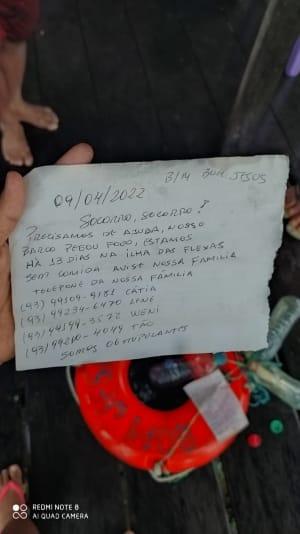 B/M BOM JESUS
09/04/2022
SOCORRO, SOCORRO!
PRECISAMOS DE AJUDA, NOSSO
BARCO PEGOU FOGO, ESTAMOS
HÁ 13 DIAS NA ILHA DAS FLEXAS
SEM COMIDA AVISE NOSSA FAMILIA
TELEFONE DA NOSSA FAMÍLIA
(93) 99109-9181 CÁTIA
(93) 99234-6470 LENE
(93) 99199-3572 WENI
(93) 99210-4049 TÃO
SOMOS 06 TRIPULANTES
REDMI NOTE 8
AI QUAD CAMERA